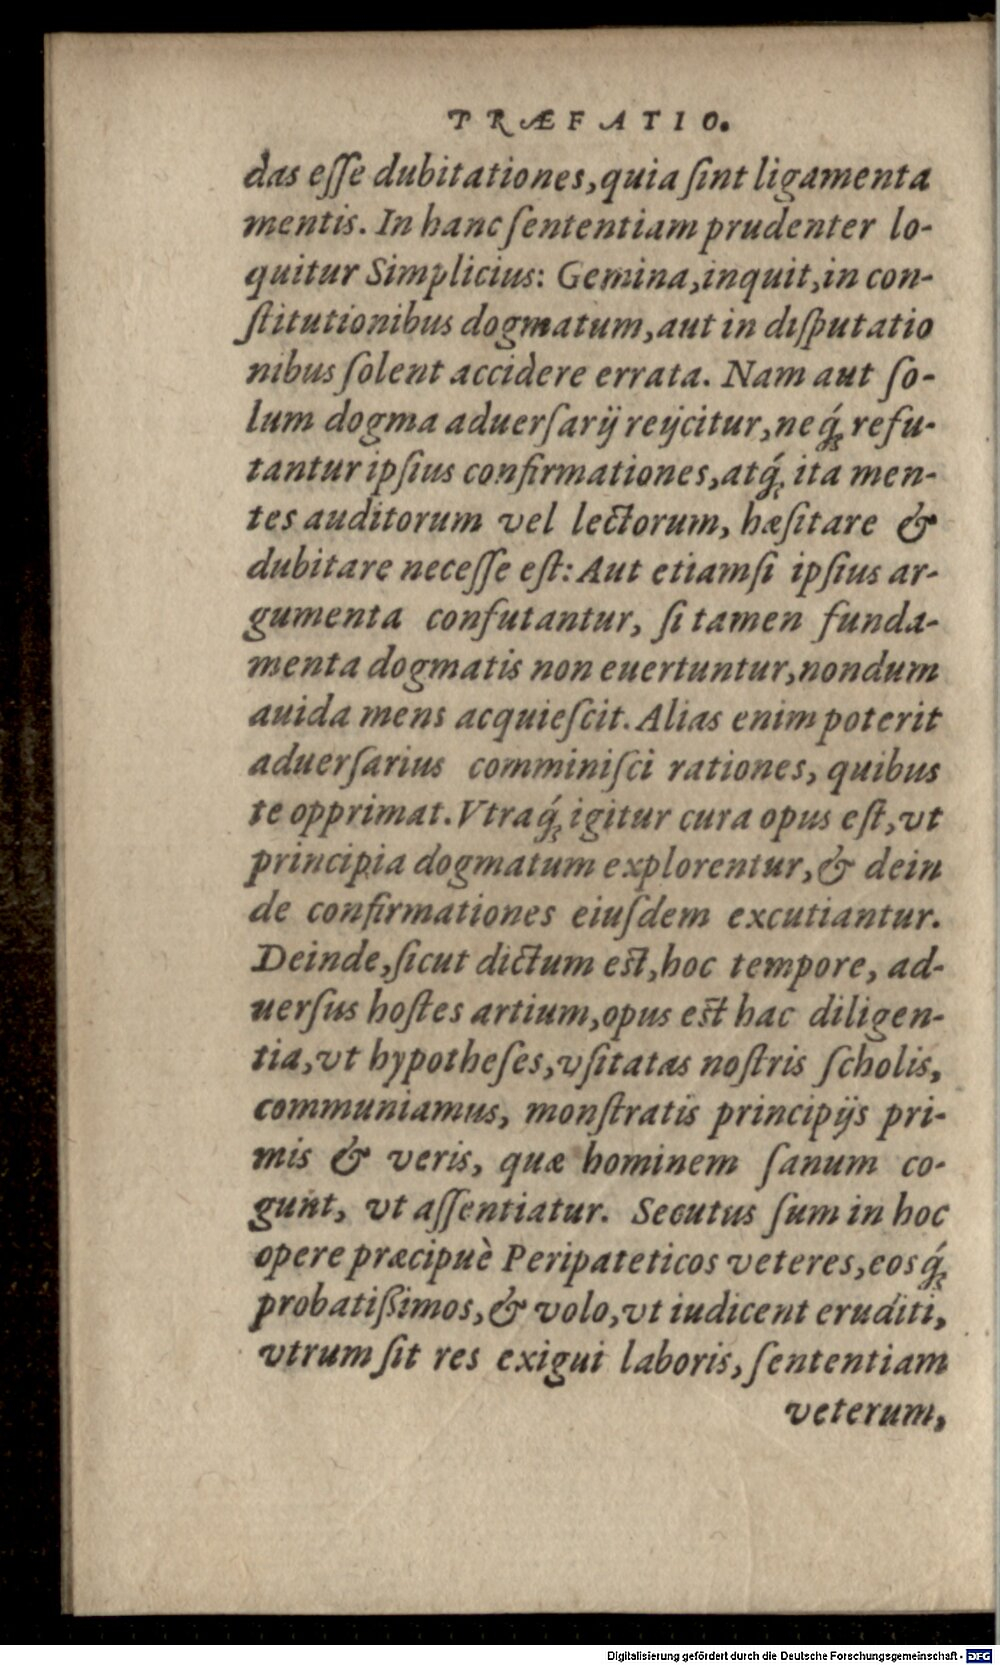 PRÆFATIO.
das eſſe dubitationes, quia ſint ligamenta
mentis. In hanc ſententiam prudenter lo-
quitur Simplicius: Gemina, inquit, in con-
ſtitutionibus dogmatum, aut in diſputatio
nibus ſolent accidere errata. Nam aut ſo-
lum dogma aduerſarij reijcitur, neq́; refu-
tantur ipſius confirmationes, atq́; ita men-
tes auditorum vel lectorum, hæſitare &
dubitare neceſſe eſt: Aut etiamſi ipſius ar-
gumenta confutantur, ſi tamen funda-
menta dogmatis non euertuntur, nondum
auida mens acquieſcit. Alias enim poterit
aduerſarius comminiſci rationes, quibus
te opprimat. Vtraq́; igitur cura opus eſt, vt
principia dogmatum explorentur, & dein
de confirmationes eiuſdem excutiantur.
Deinde, ſicut dictum est, hoc tempore, ad-
uerſus hoſtes artium, opus est hac diligen-
tia, vt hypotheſes, vſitatas noſtris ſcholis,
communiamus, monſtratis principijs pri-
mis & veris, quæ hominem ſanum co-
gunt, vt aſſentiatur. Secutus ſum in hoc
opere præcipuè Peripateticos veteres, eosq́;
probatiſsimos, & volo, vt iudicent eruditi,
vtrum ſit res exigui laboris, ſententiam
veterum,
Digitalisierung gefördert durch die Deutsche Forschungsgemeinschaft - DFG